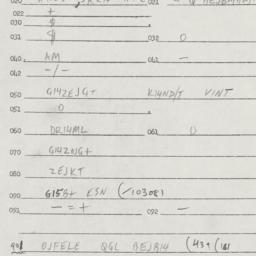 022 +
030 $
031 $ 032 0
040 AM 041 -
042 -/-
050 G14ZEJG+ K14ND/T VINT
051 0
060 DR14ML 061 0
070 G14ZNG+
080 ZEJKT
090 G15B+ ESN (-/10308)
091 - = + 092 -
DJFELE QGL BEJB14 (43+(